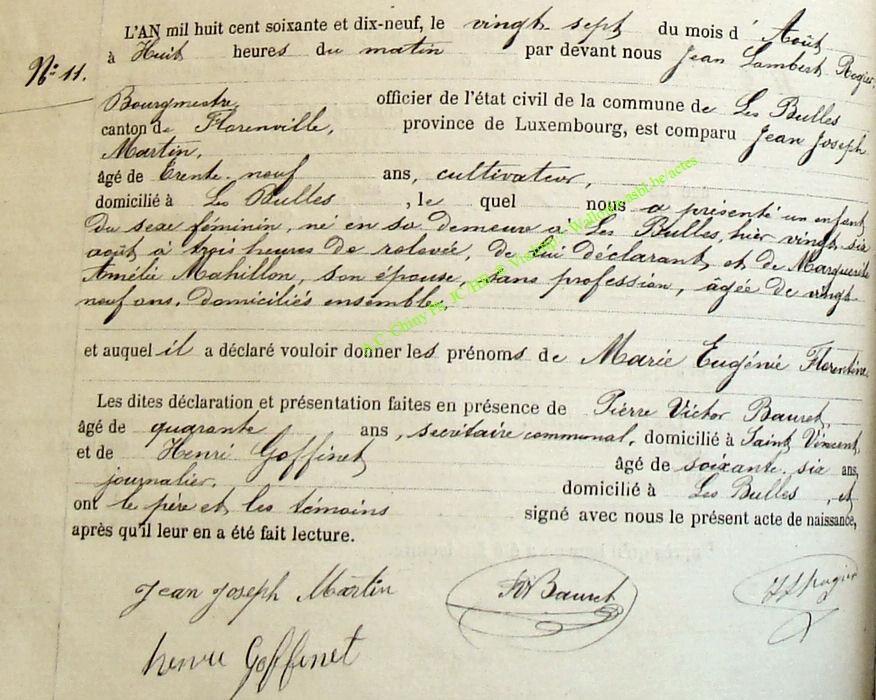 L'AN mil huit cent soixante et dix-neuf, le vingt sept du mois d'Août
à Huit heures du matin par devant nous Jean Lambert Rogier,
N° 11.
Bourgmestre officier de l'état civil de la commune de Les Bulles
canton de Florenville, province de Luxembourg, est comparu Jean Joseph
Martin,
âgé de trente-neuf ans, cultivateur,
domicilié à Les Bulles, le quel nous a présenté un enfant
du sexe féminin, né en sa demeure à Les Bulles, hier vingt six
août à trois heures de relevée, de lui déclarant et de Marguerite
Amélie Mahillon, son épouse, sans profession, âgée de vingt
neuf ans, domiciliés ensemble
et auquel il a déclaré vouloir donner les prénoms de Marie Eugénie Florentine
Les dites déclaration et présentation faites en présence de Pierre Victor Bauret,
âgé de quarante ans, secrétaire communal, domicilié à Saint Vincent,
et de Henri Goffinet âgé de soixante six ans,
journalier, domicilié à Les Bulles, et
ont le père et les témoins signé avec nous le présent acte de naissance,
après qu'il leur en a été fait lecture.
Jean Joseph Martin Bauret
henri Goffinet
A.C. Chiny